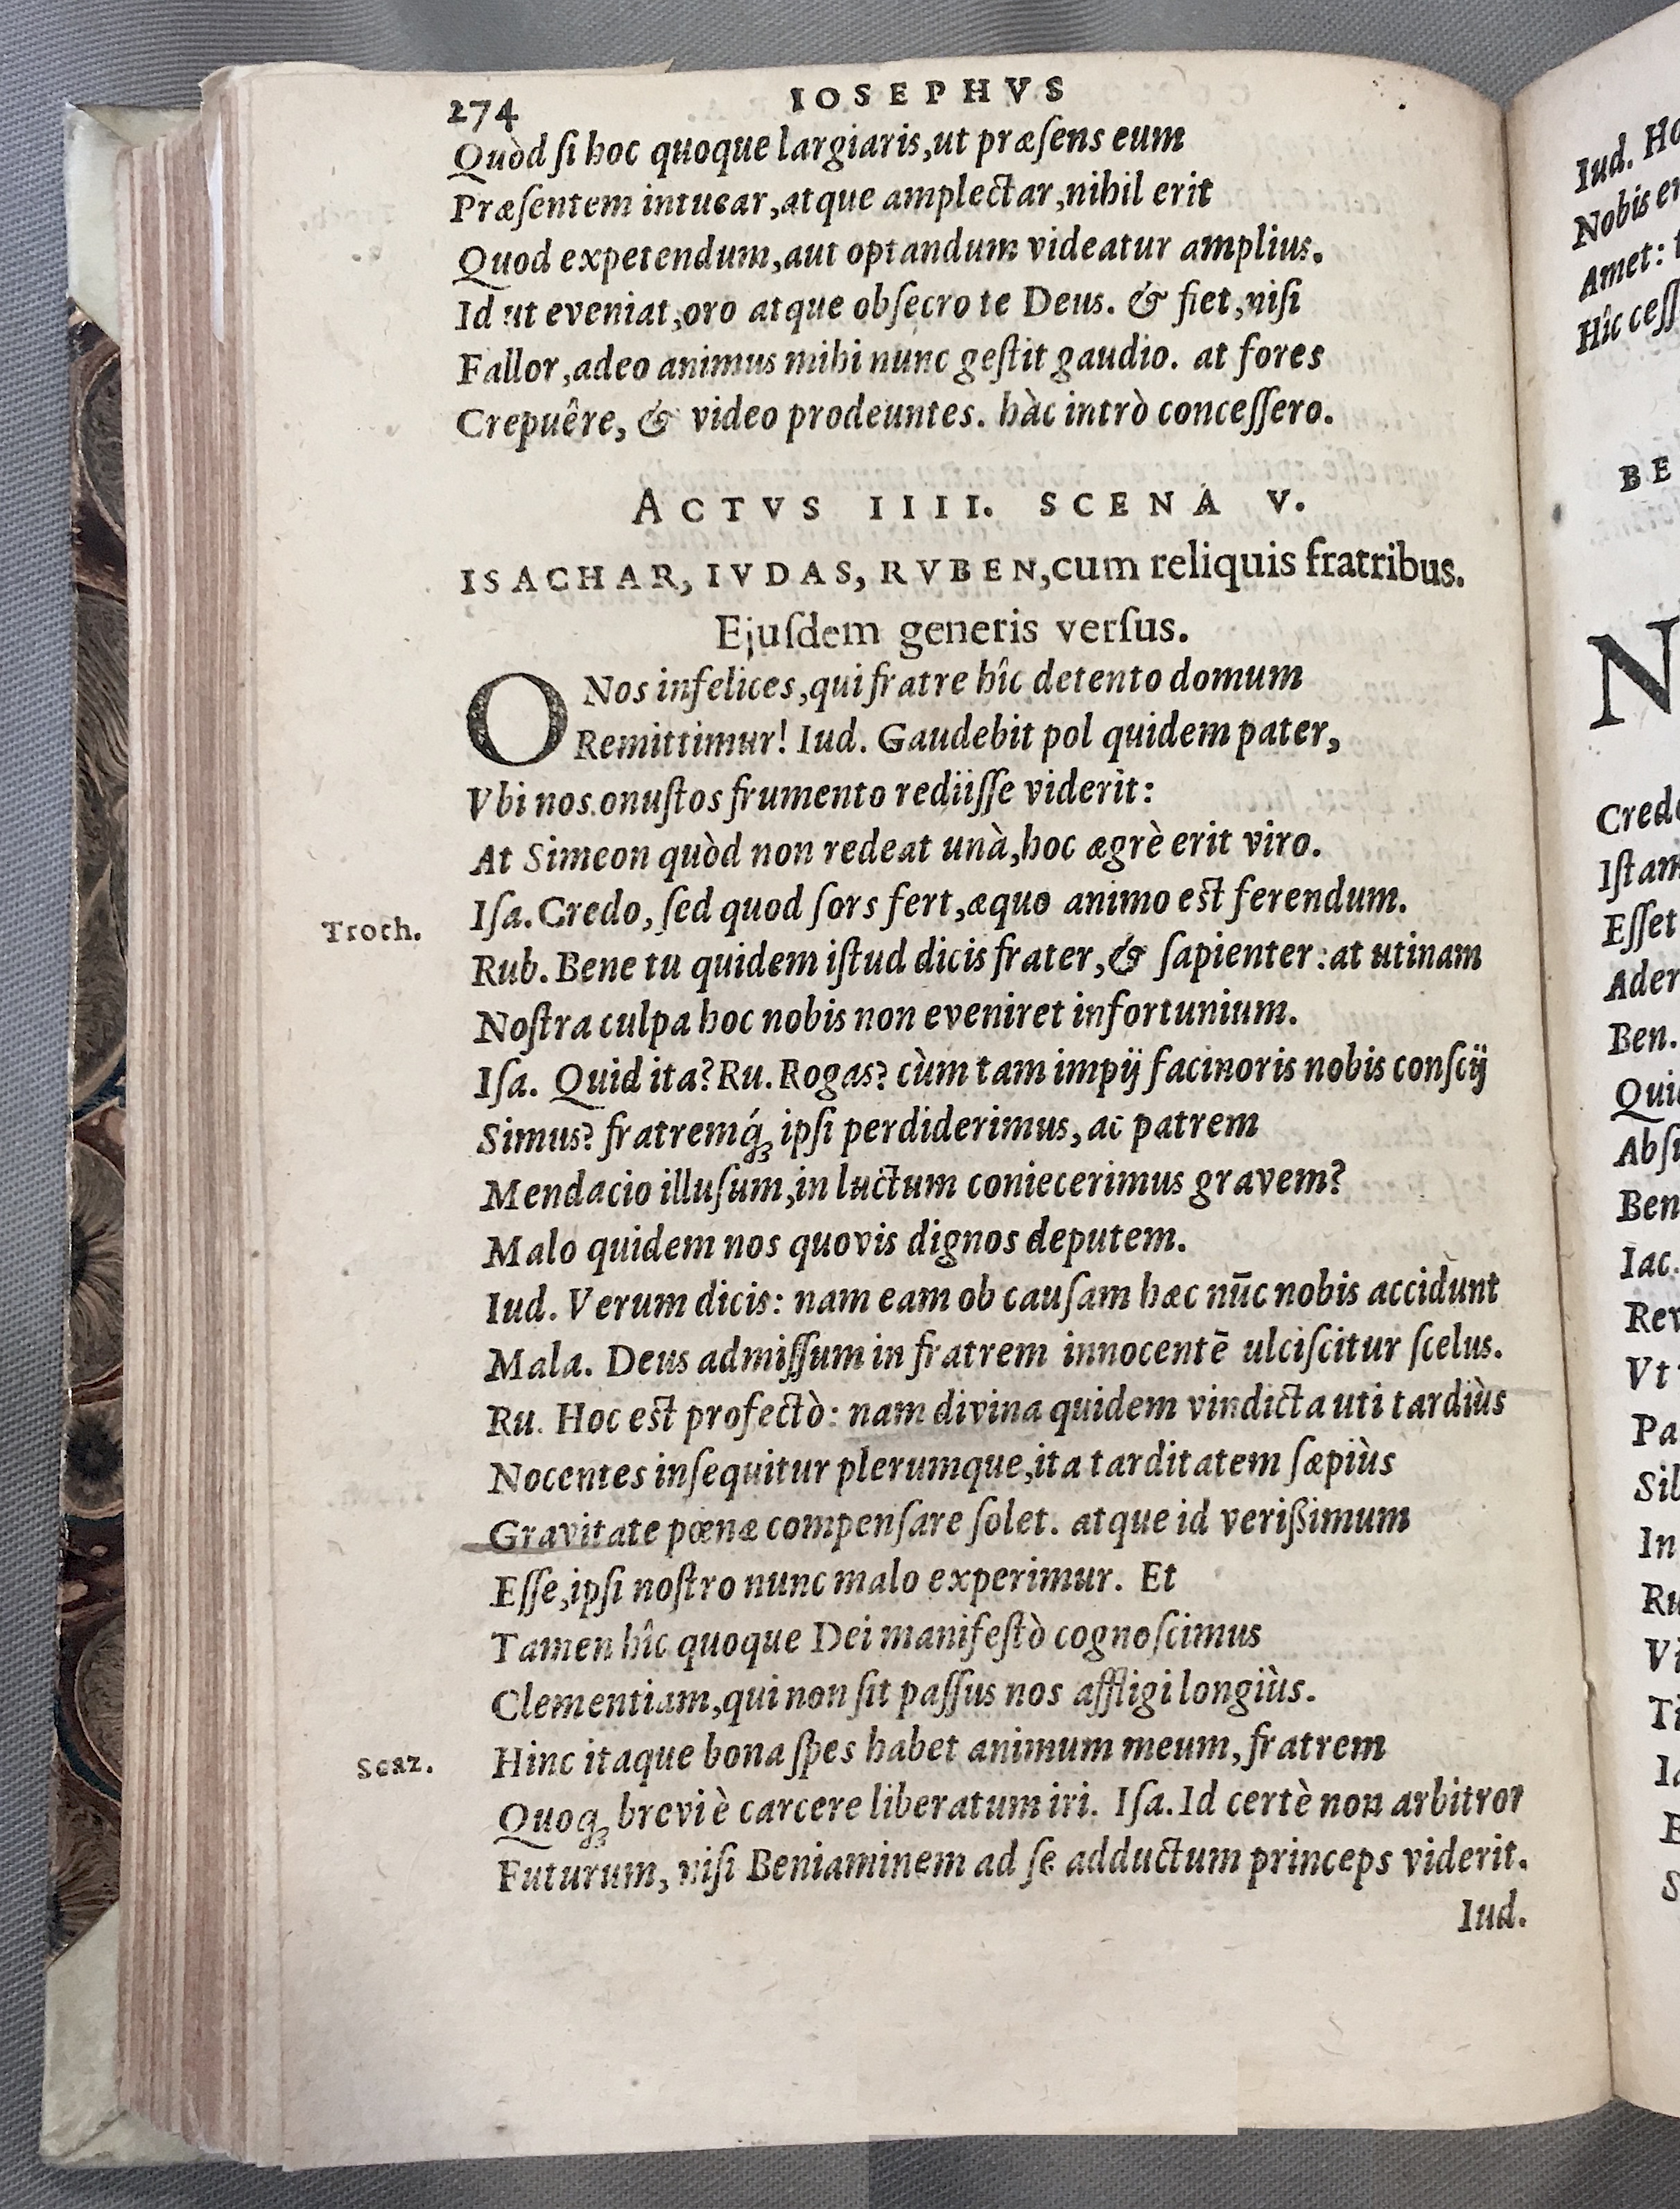 274 IOSEPHVS
Quòd ſi hoc quoque largiaris, ut præſens eum
Præſentem intuear, atque amplectar, nihil erit
Quod expetendum, aut optandum videatur amplius.
Id ut eveniat, oro atque obſecro te Deus. & fiet, niſi
Fallor, adeo animus mihi nunc geſtit gaudio. at fores
Crepuêre, & video prodeuntes. hàc intrò conceſſero.
ACTVS IIII. SCENA V.
ISACHAR, IVDAS, RVBEN, cum reliquis fratribus.
Ejuſdem generis verſus.
O Nos infelices, qui fratre hîc detento domum
Remittimur! Iud. Gaudebit pol quidem pater,
Vbi nos onuſtos frumento rediiſſe viderit:
At Simeon quòd non redeat unà, hoc ægrè erit viro.
Iſa. Credo, ſed quod ſors fert, æquo animo eſt ferendum.
Troch.
Rub. Bene tu quidem iſtud dicis frater, & ſapienter: at utinam
Noſtra culpa hoc nobis non eveniret infortunium.
Iſa. Quid ita? Ru. Rogas? cùm tam impij facinoris nobis conſcij
Simus? fratremq́; ipſi perdiderimus, ac patrem
Mendacio illuſum, in luctum coniecerimus gravem?
Malo quidem nos quovis dignos deputem.
Iud. Verum dicis: nam eam ob cauſam hæc nūc nobis accidunt
Mala. Deus admiſſum in fratrem innocentē ulciſcitur ſcelus.
Ru. Hoc eſt profectò: nam divina quidem vindicta uti tardiùs
Nocentes inſequitur plerumque, ita tarditatem ſæpiùs
Gravitate pœnæ compenſare ſolet. atque id verißimum
Eſſe, ipſi noſtro nunc malo experimur. Et
Tamen hîc quoque Dei manifeſtò cognoſcimus
Clementiam, qui non ſit paſſus nos affligi longiùs.
Scaz. Hinc itaque bona ſpes habet animum meum, fratrem
Quoq; brevi è carcere liberatum iri. Iſa. Id certè non arbitror
Futurum, niſi Beniaminem ad ſe adductum princeps viderit.
Iud.
Iud.
Nobis
Amet:
Hîc
BE
N
Iſtam
Eſſet
Ben.
Ben
Iac.
Vt
Pa
In